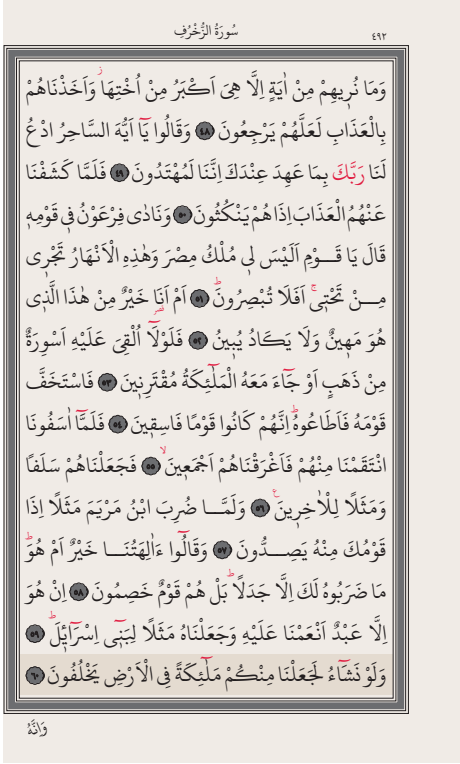 ٤٩٢ سُورَةُ الزُّخْرُفِ
وَمَا نُرٖيهِمْ مِنْ اٰيَةٍ اِلَّا هِىَ اَكْبَرُ مِنْ اُخْتِهَاۘ وَاَخَذْنَاهُمْ
بِالْعَذَابِ لَعَلَّهُمْ يَرْجِعُونَ ﴿٤٨﴾ وَقَالُوا يَٓا اَيُّهَ السَّاحِرُ ادْعُ
لَنَا رَبَّكَ بِمَا عَهِدَ عِنْدَكَ اِنَّنَا لَمُهْتَدُونَ ﴿٤٩﴾ فَلَمَّا كَشَفْنَا
عَنْهُمُ الْعَذَابَ اِذَا هُمْ يَنْكُثُونَ ﴿٥٠﴾ وَنَادٰى فِرْعَوْنُ فٖى قَوْمِهٖ
قَالَ يَا قَوْمِ اَلَيْسَ لٖى مُلْكُ مِصْرَ وَهٰذِهِ الْاَنْهَارُ تَجْرٖى
مِنْ تَحْتٖىۚ اَفَلَا تُبْصِرُونَؕ ﴿٥١﴾ اَمْ اَنَا۬ خَيْرٌ مِنْ هٰذَا الَّذٖى
هُوَ مَهٖينٌ وَلَا يَكَادُ يُبٖينُ ﴿٥٢﴾ فَلَوْلَٓا اُلْقِىَ عَلَيْهِ اَسْوِرَةٌ
مِنْ ذَهَبٍ اَوْ جَٓاءَ مَعَهُ الْمَلٰٓئِكَةُ مُقْتَرِنٖينَ ﴿٥٣﴾ فَاسْتَخَفَّ
قَوْمَهُ فَاَطَاعُوهُؕ اِنَّهُمْ كَانُوا قَوْمًا فَاسِقٖينَ ﴿٥٤﴾ فَلَمَّٓا اٰسَفُونَا
انْتَقَمْنَا مِنْهُمْ فَاَغْرَقْنَاهُمْ اَجْمَعٖينَۙ ﴿٥٥﴾ فَجَعَلْنَاهُمْ سَلَفًا
وَمَثَلًا لِلْاٰخِرٖينَࣖ ﴿٥٦﴾ وَلَمَّا ضُرِبَ ابْنُ مَرْيَمَ مَثَلًا اِذَا
قَوْمُكَ مِنْهُ يَصِدُّونَ ﴿٥٧﴾ وَقَالُٓوا ءَاٰلِهَتُنَا خَيْرٌ اَمْ هُوَؕ
مَا ضَرَبُوهُ لَكَ اِلَّا جَدَلًاؕ بَلْ هُمْ قَوْمٌ خَصِمُونَ ﴿٥٨﴾ اِنْ هُوَ
اِلَّا عَبْدٌ اَنْعَمْنَا عَلَيْهِ وَجَعَلْنَاهُ مَثَلًا لِبَنٖٓى اِسْرَٓائٖلَؕ ﴿٥٩﴾
وَلَوْ نَشَٓاءُ لَجَعَلْنَا مِنْكُمْ مَلٰٓئِكَةً فِى الْاَرْضِ يَخْلُفُونَ ﴿٦٠﴾
وَاِنَّهُ